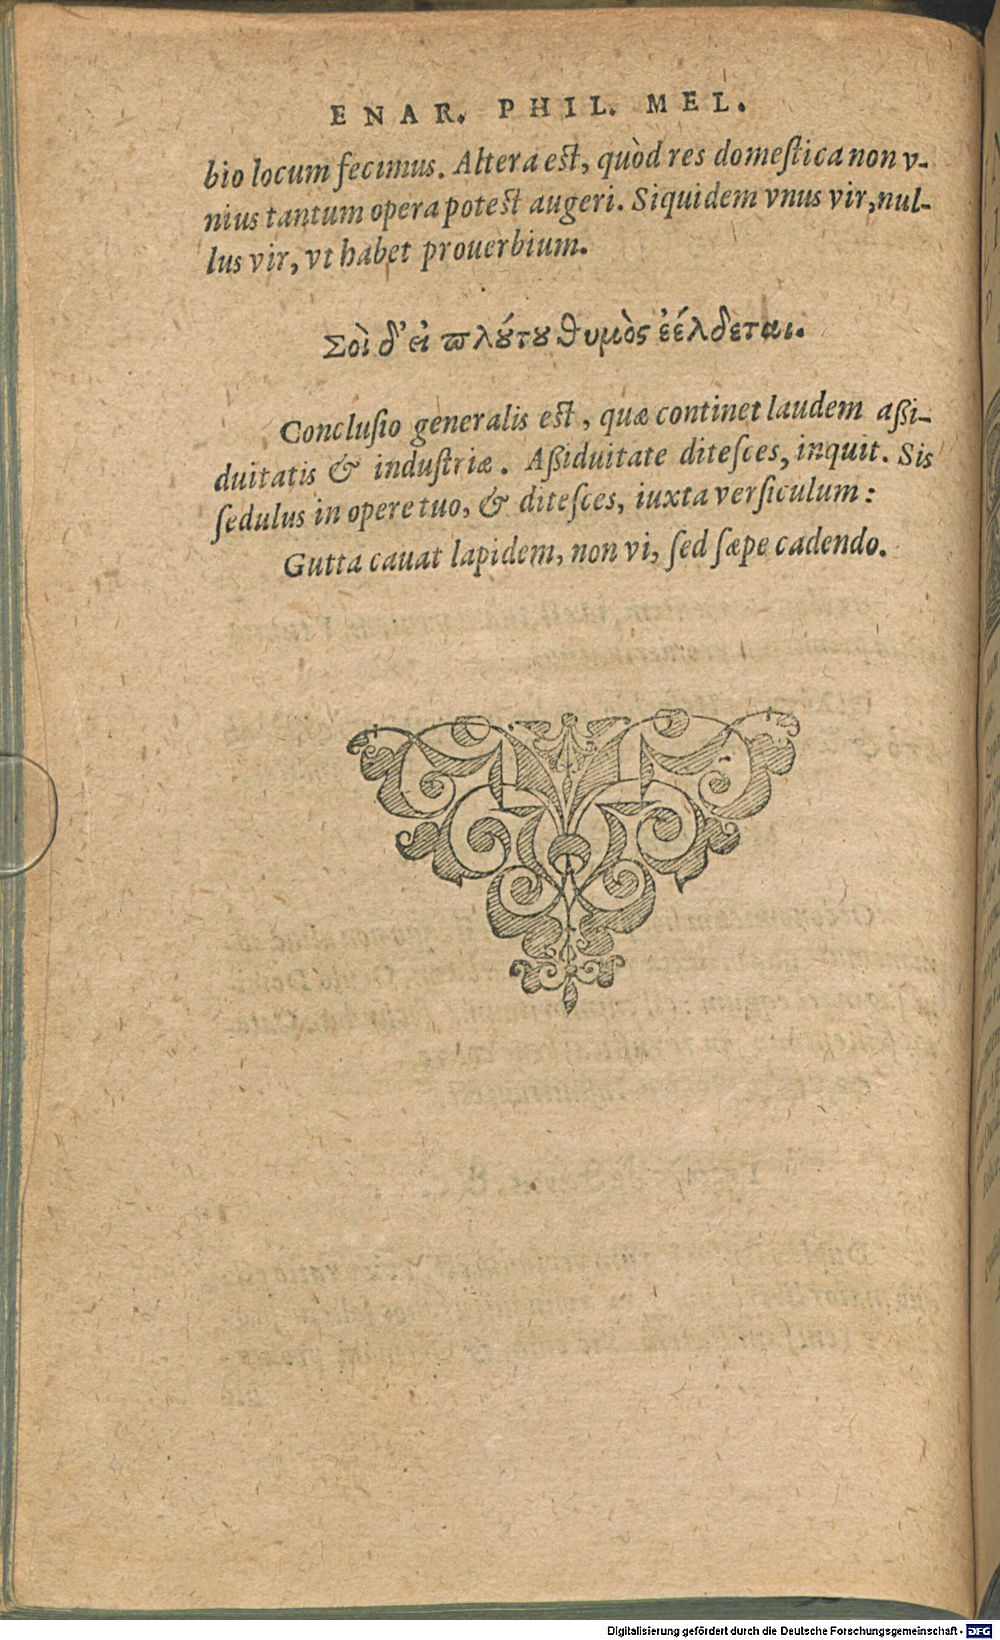 ENAR. PHIL. MEL.
bio locum fecimus. Altera est, quòd res domestica non v-
nius tantum opera potest augeri. Siquidem vnus vir, nul-
lus vir, vt habet prouerbium.
Σοὶ δ' εἰ πλούτου θυμὸς ἐέλδεται.
Conclusio generalis est, quæ continet laudem aßi-
duitatis & industriæ. Aßiduitate ditesces, inquit. Sis
sedulus in opere tuo, & ditesces, iuxta versiculum:
Gutta cauat lapidem, non vi, sed sæpe cadendo.
Digitalisierung gefördert durch die Deutsche Forschungsgemeinschaft - DFG